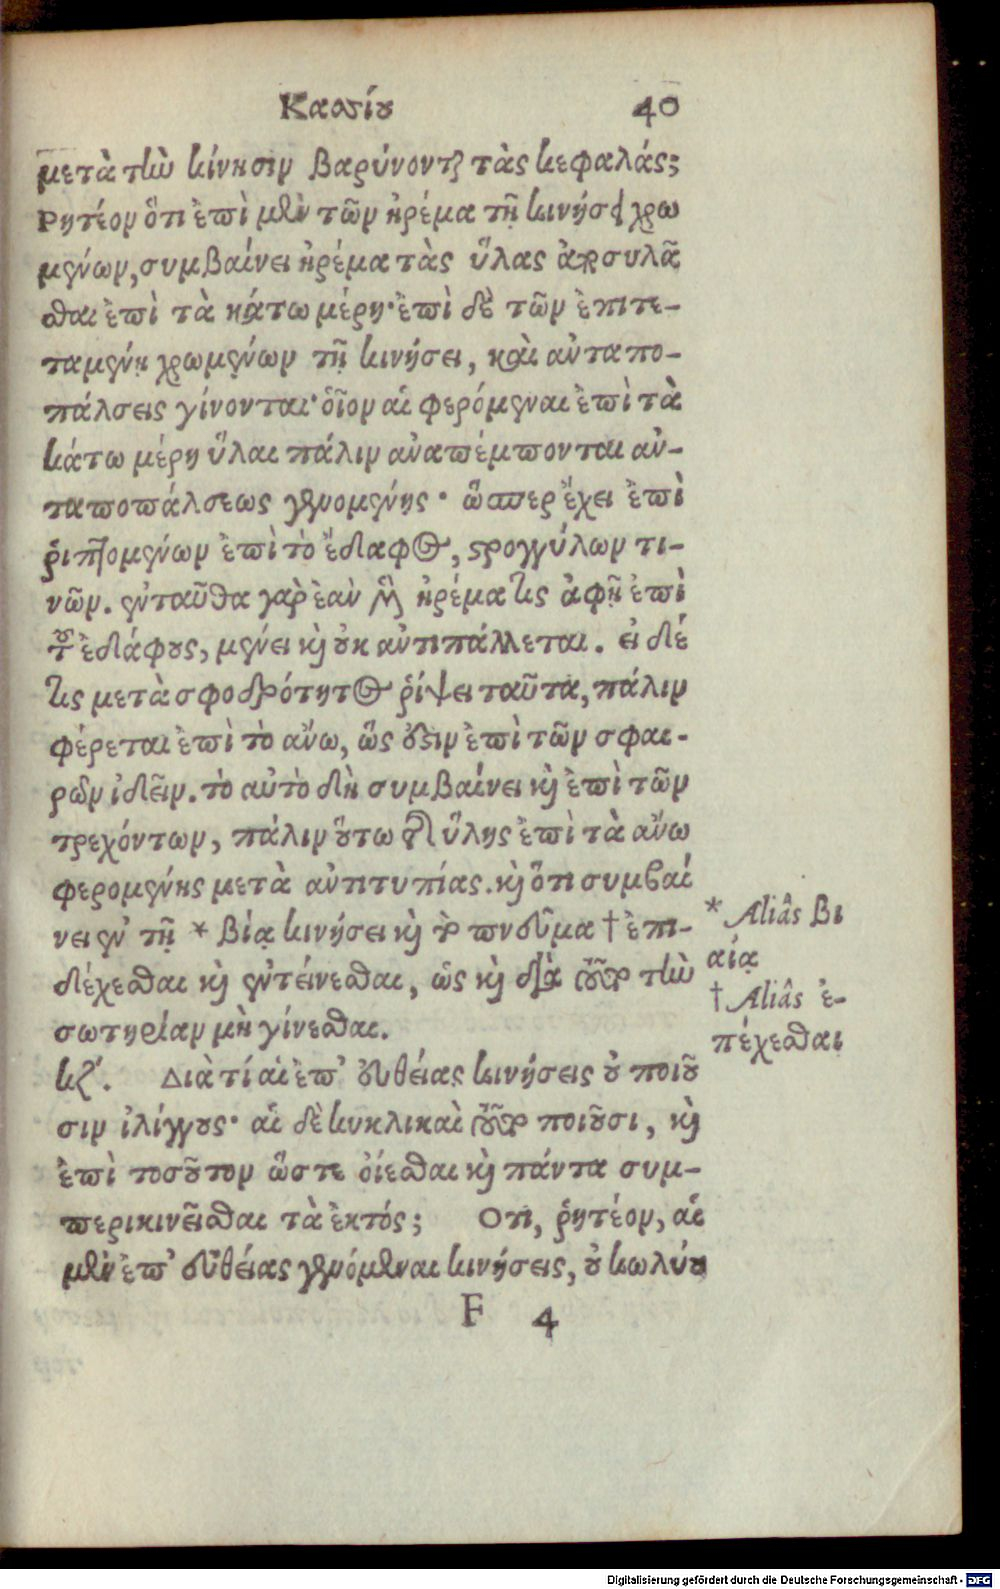 Κασσίου 40
μετὰ τὴν κίνησιν βαρύνονται τὰς κεφαλάς;
Ρητέον ὅτι ἐπὶ μὲν τῶν ἠρέμα τῇ κινήσει χρω
μένων, συμβαίνει ἠρέμα τὰς ὕλας παρασυλᾶ
σθαι ἐπὶ τὰ κάτω μέρη· ἐπὶ δὲ τῶν ἐπιτε-
ταμένῃ χρωμένων τῇ κινήσει, καὶ ἀνταπο-
πάλσεις γίνονται· οἷον αἱ φερόμεναι ἐπὶ τὰ
κάτω μέρη ὗλαι πάλιν ἀναπέμπονται ἀν-
ταποπάλσεως γενομένης· ὥσπερ ἔχει ἐπὶ
ῥιπτομένων ἐπὶ τὸ ἔδαφος, στρογγύλων τι-
νῶν. ἐνταῦθα γὰρ ἐὰν μὲν ἠρέμα τις ἀφῇ ἐπὶ
τοῦ ἐδάφους, μένει καὶ οὐκ ἀντιπάλλεται. εἰ δέ
τις μετὰ σφοδρότητος ῥίψει ταῦτα, πάλιν
φέρεται ἐπὶ τὸ ἄνω, ὥς ἐστιν ἐπὶ τῶν σφαι-
ρῶν ἰδεῖν. τὸ αὐτὸ δὴ συμβαίνει καὶ ἐπὶ τῶν
τρεχόντων, πάλιν οὕτω τῆς ὕλης ἐπὶ τὰ ἄνω
φερομένης μετὰ ἀντιτυπίας. καὶ ὅτι συμβαί
νει ἐν τῇ * βίᾳ κινήσει καὶ τὸ πνεῦμα † ἐπι-
δέχεσθαι καὶ ἐντείνεσθαι, ὡς καὶ διὰ τοῦτο τὴν
σωτηρίαν μὴ γίνεσθαι.
* Aliâs βι
αίᾳ
† Aliâs ἐ-
πέχεσθαι
κζʹ. Διὰ τί αἱ ἐπ' εὐθείας κινήσεις οὐ ποιοῦ
σιν ἰλίγγους· αἱ δὲ κυκλικαὶ τοῦτο ποιοῦσι, καὶ
ἐπὶ τοσοῦτον ὥστε οἴεσθαι καὶ πάντα συμ-
περικινεῖσθαι τὰ ἐκτός; Οτι, ῥητέον, αἱ
μὲν ἐπ' εὐθείας γενόμεναι κινήσεις, οὐ κωλύου
F 4
Digitalisierung gefördert durch die Deutsche Forschungsgemeinschaft - DFG